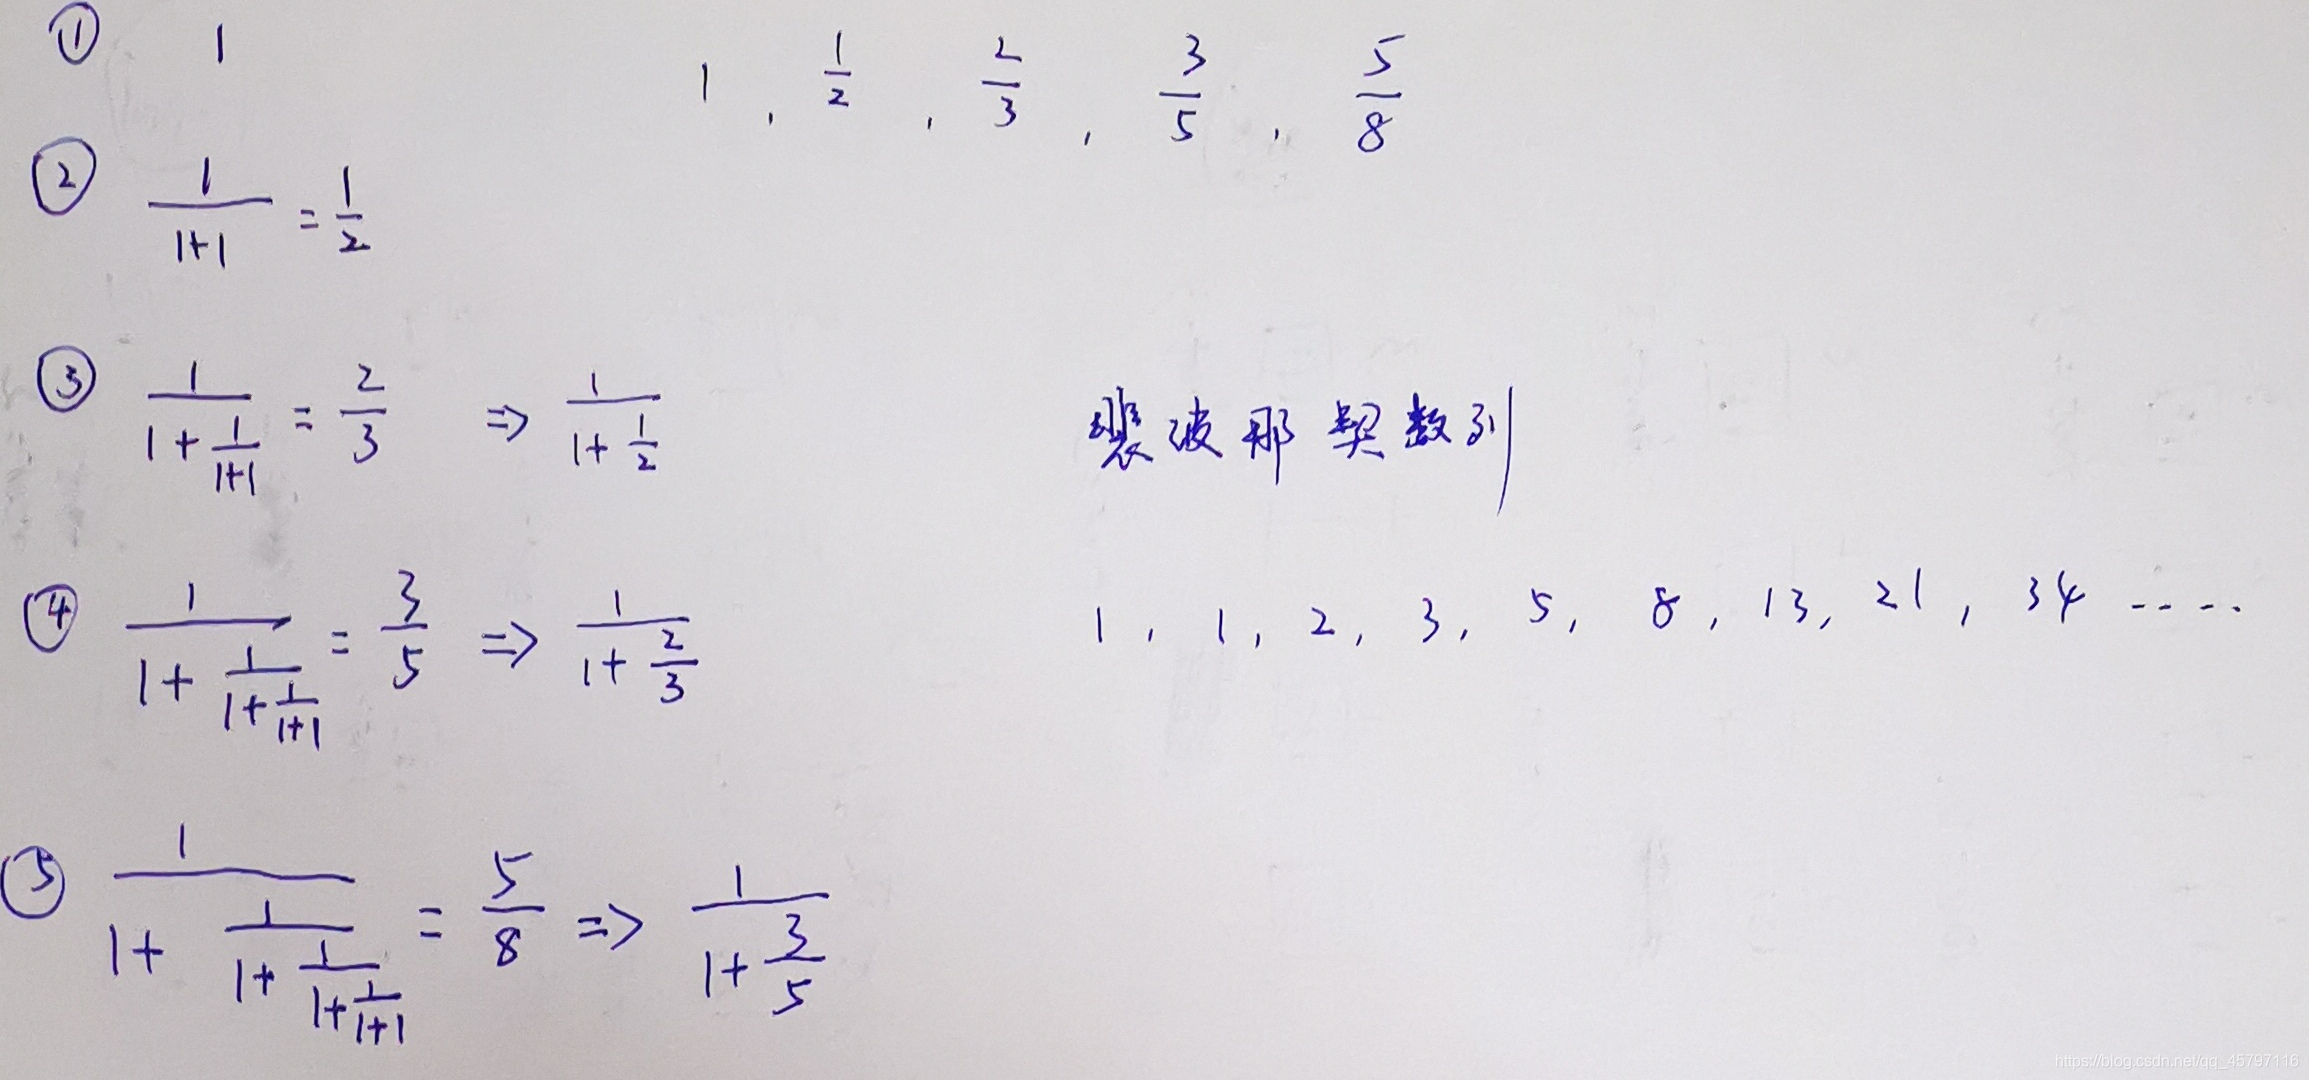 ① 1
1 , 1/2 , 2/3 , 3/5 , 5/8
② 1/(1+1) = 1/2
③ 1/(1+1/(1+1)) = 2/3 => 1/(1+1/2)
裴波那契数列
④ 1/(1+1/(1+1/(1+1))) = 3/5 => 1/(1+2/3)
1 , 1 , 2 , 3 , 5 , 8 , 13 , 21 , 34 ----
⑤ 1/(1+1/(1+1/(1+1/(1+1)))) = 5/8 => 1/(1+3/5)
https://blog.csdn.net/qq_45797116